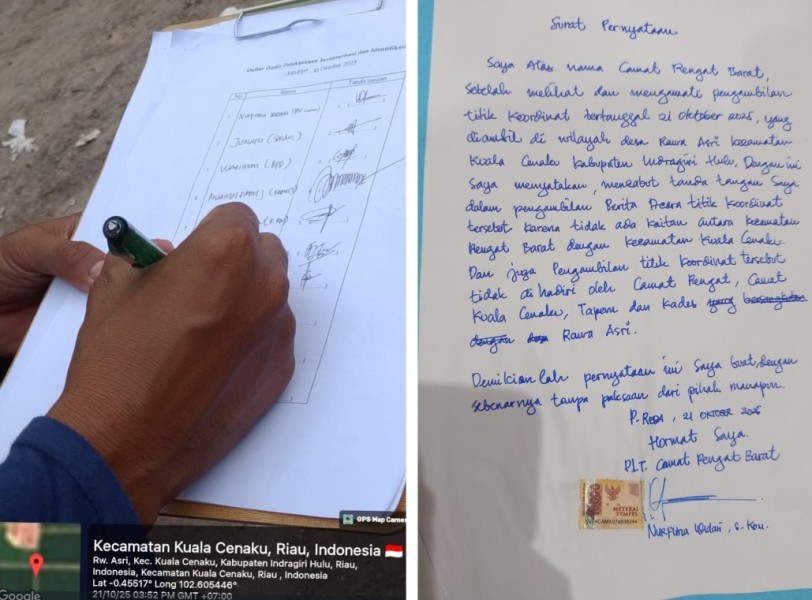 Daftar Hadir Pelaksanaan Inventarisasi dan Identifikasi
21 Oktober 2025
No
Nama
Tanda tangan
GPS Map Camera
Kecamatan Kuala Cenaku, Riau, Indonesia
Rw. Asri, Kec. Kuala Cenaku, Kabupaten Indragiri Hulu, Riau,
Indonesia, Kecamatan Kuala Cenaku, Riau , Indonesia
Lat -0.45517° Long 102.605446°
21/10/25 03:52 PM GMT +07:00
Google
Surat Pernyataan
Saya Atas nama Camat Rengat Barat,
sebelah melihat dan mengamati pengambilan
titik koordinat tertanggal 21 oktober 2025, yang
diambil di wilayah desa Rawa Asri kecamatan
Kuala Cenaku Kabupaten Indragiri Hulu, Dengan ini
Saya menyatakan, mencabut tanda tangan Saya
dalam pengambilan Berita Acara titik koordinat
tersebut karena tidak ada kaitan antara kecamatan
Rengat Barat dengan kecamatan Kuala Cenaku.
Dan juga Pengambilan titik koordinat tersebut
tidak di hadiri oleh Camat Rengat, Camat
Kuala Cenaku, Tapem dan Kades yang
dengan Rawa Asri.
Demikian lah pernyataan ini Saya buat, dengan
sebenarnya tanpa paksaan dari pihak manapun.
P. Reba, 21 OKTOBER 2025
Hormat Saya.
PLT. Camat Rengat Barat
METERAI
TEMPEL